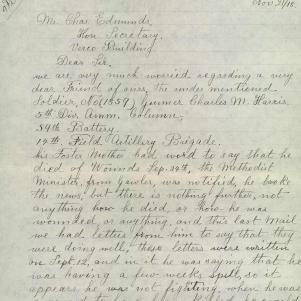 Nov 21/18.
Mr. Chas Edmunds,
Hon. Secretary.
Verco Building
Dear Sir.
we are very much worried regarding a very
dear Friend of ours, the under mentioned
Soldier, No (1857) Gunner Charles M. Harris.
5th Div. Amm. Column,
54th Battery.
14th Field Artillery Brigade.
his Foster Mother had word to say that he
died of Wounds Sep. 29th, the Methodist
Minister, from Gawler, was notified, he broke
the news, but there is nothing further, not
anything how he died, or how he was
wounded, or anything, and this last Mail
we had letters from him to say that they
were doing well, these letters were written
on Sept 12, and in it he was saying that he
was having a few weeks spell, so it
appears he was not fighting when he was